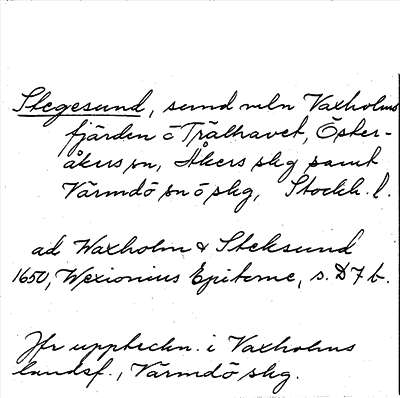 Stegesund, sund mln Vaxholms
fjärden o Trälhavet, Öster-
åkers sn, Åkers skg samt
Värmdö sn o skg, Stockh. l.
ad Waxholm & Steksund
1650, Wexionius Epitome, s. D7 b.
Jfr uppteckn. i Vaxholms
landsf., Värmdö skg.